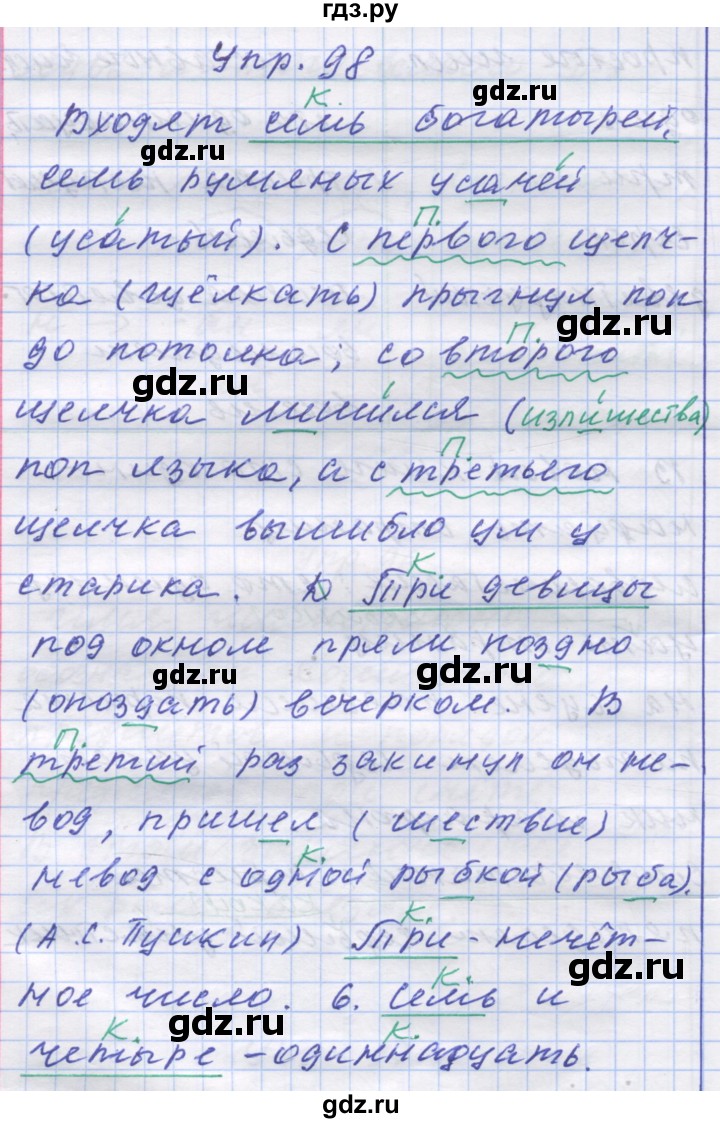 гдз.ру
Упр. 98
К.
Входят семь богатырей,
gdz.ru
gdz.ru
семь румяных усачей
П.
(усатый). С первого щелч-
ка (щёлкать) прыгнул поп
gdz.ru
П.
до потолка; со второго
gdz.ru
щелчка лишился (излишества)
П.
поп языка, а с третьего
щелчка вышибло ум у
К
старика. Три девицы
gdz.ru
под окном пряли поздно
gdz.ru
gdz.ru
(опоздать) вечерком. В
П.
третий раз закинул он не-
вод, пришел (шествие)
К.
невод с одной рыбкой (рыба).
К.
(А.С. Пушкин) Три - нечёт-
gdz.ru
К.
ное число. 6. Семь и
gdz.ru
К.
К.
четыре - одиннадцать.
gdz.ru